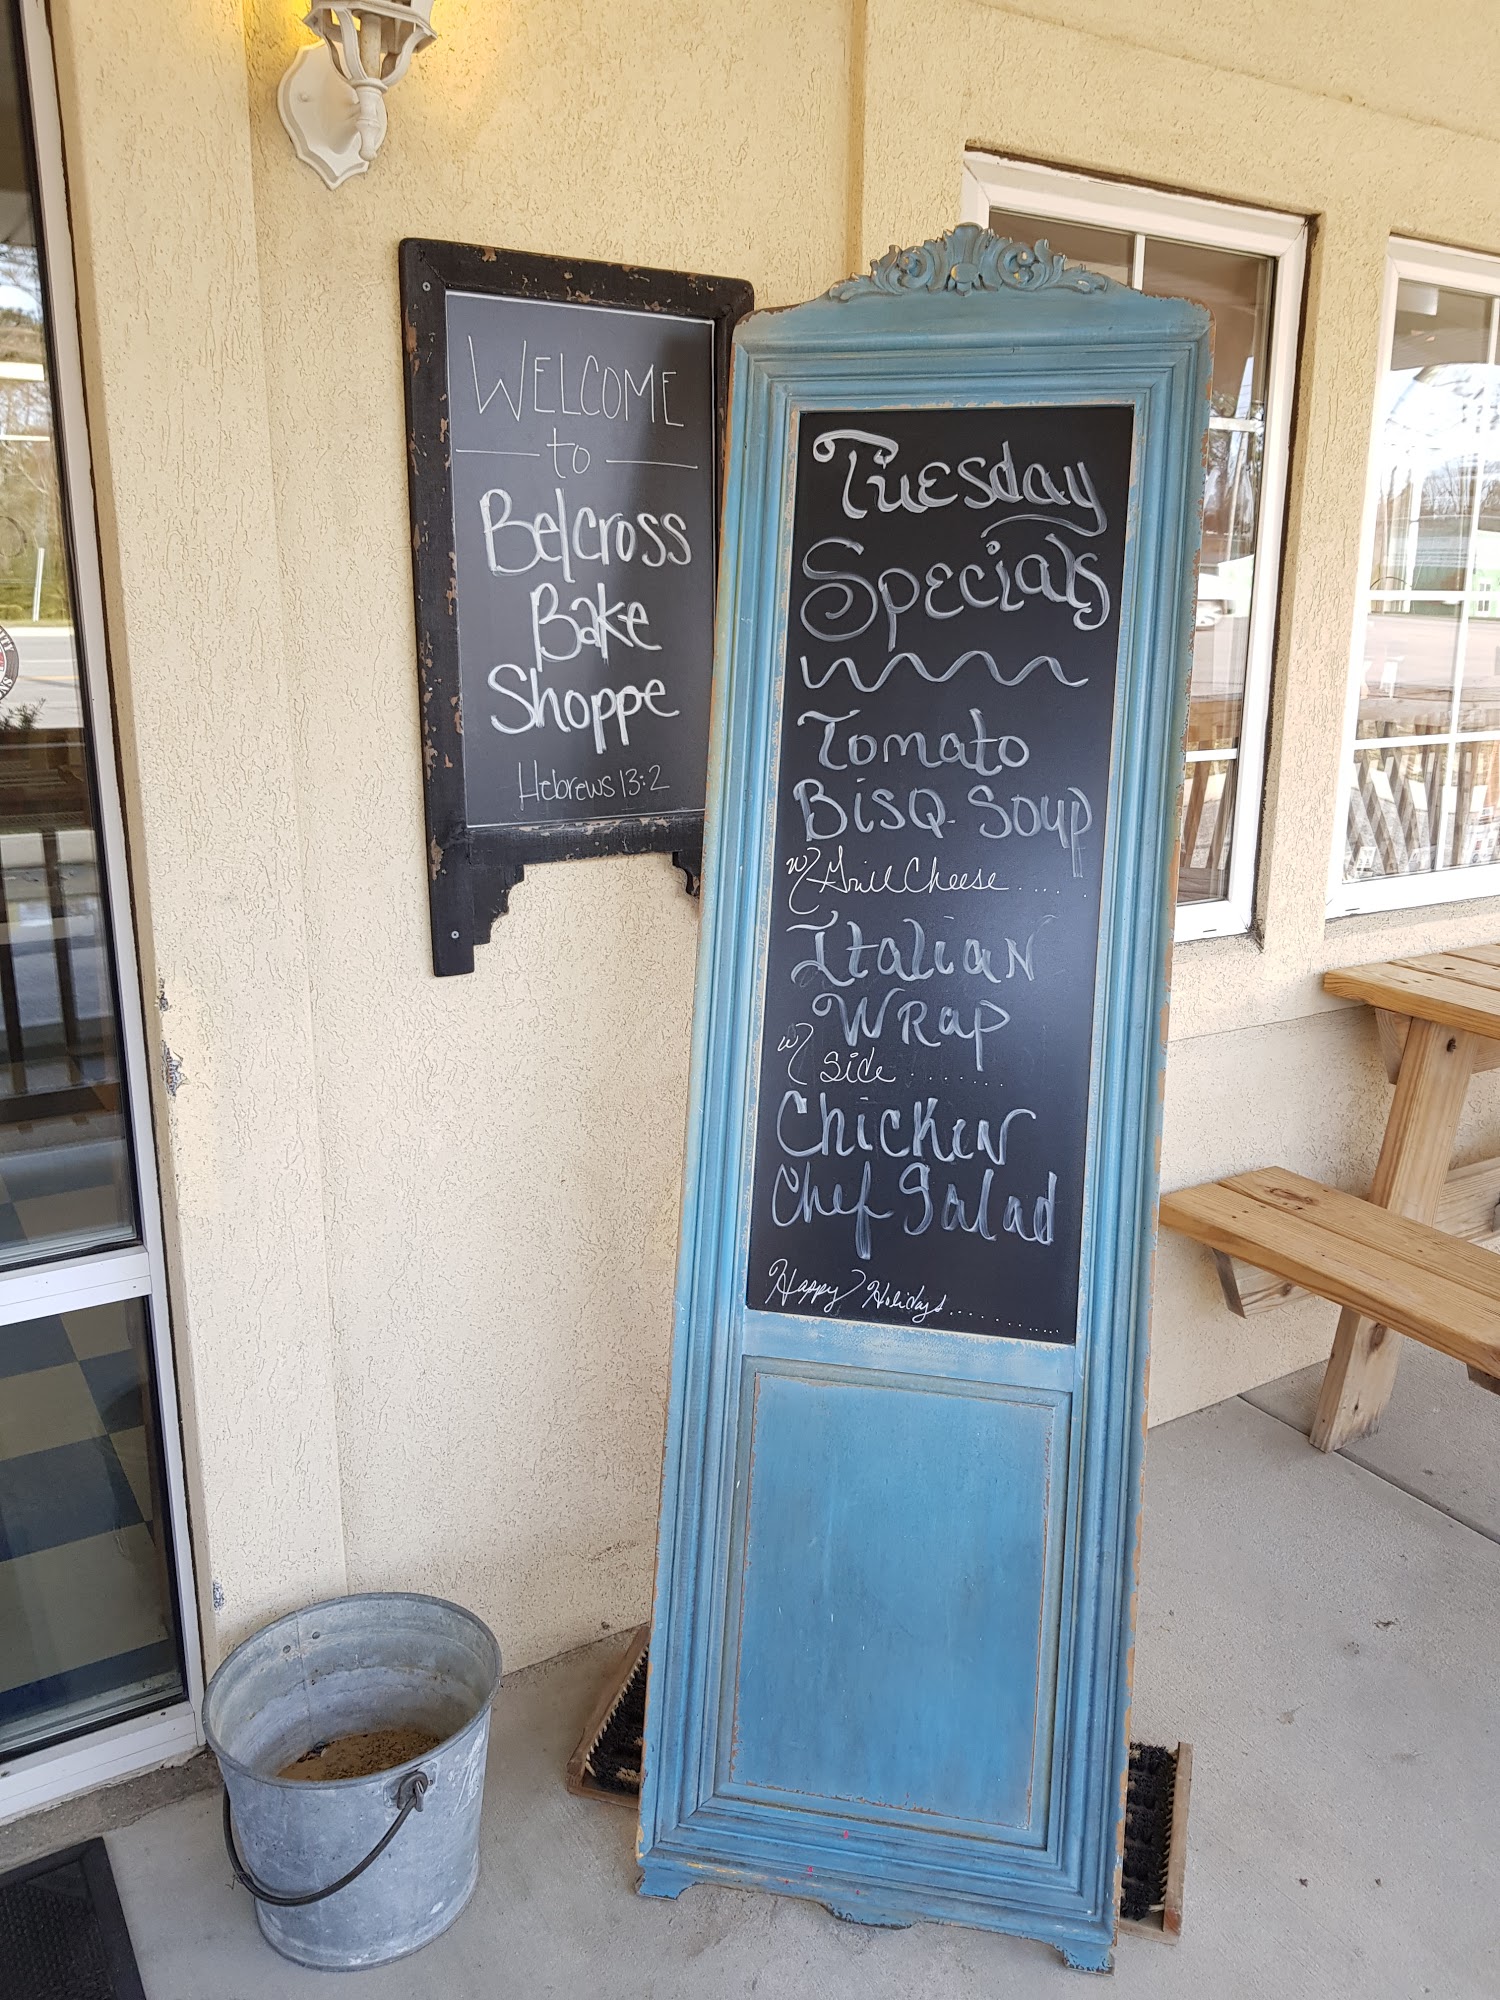 WELCOME
to
Belcross
Bake
Shoppe
Hebrews 13:2
Tuesday
Specials
Tomato
Bisq. Soup
w/ Grill Cheese.....
Italian
Wrap
w/ side.......
Chicken
Chef Salad
Happy Holidays..........